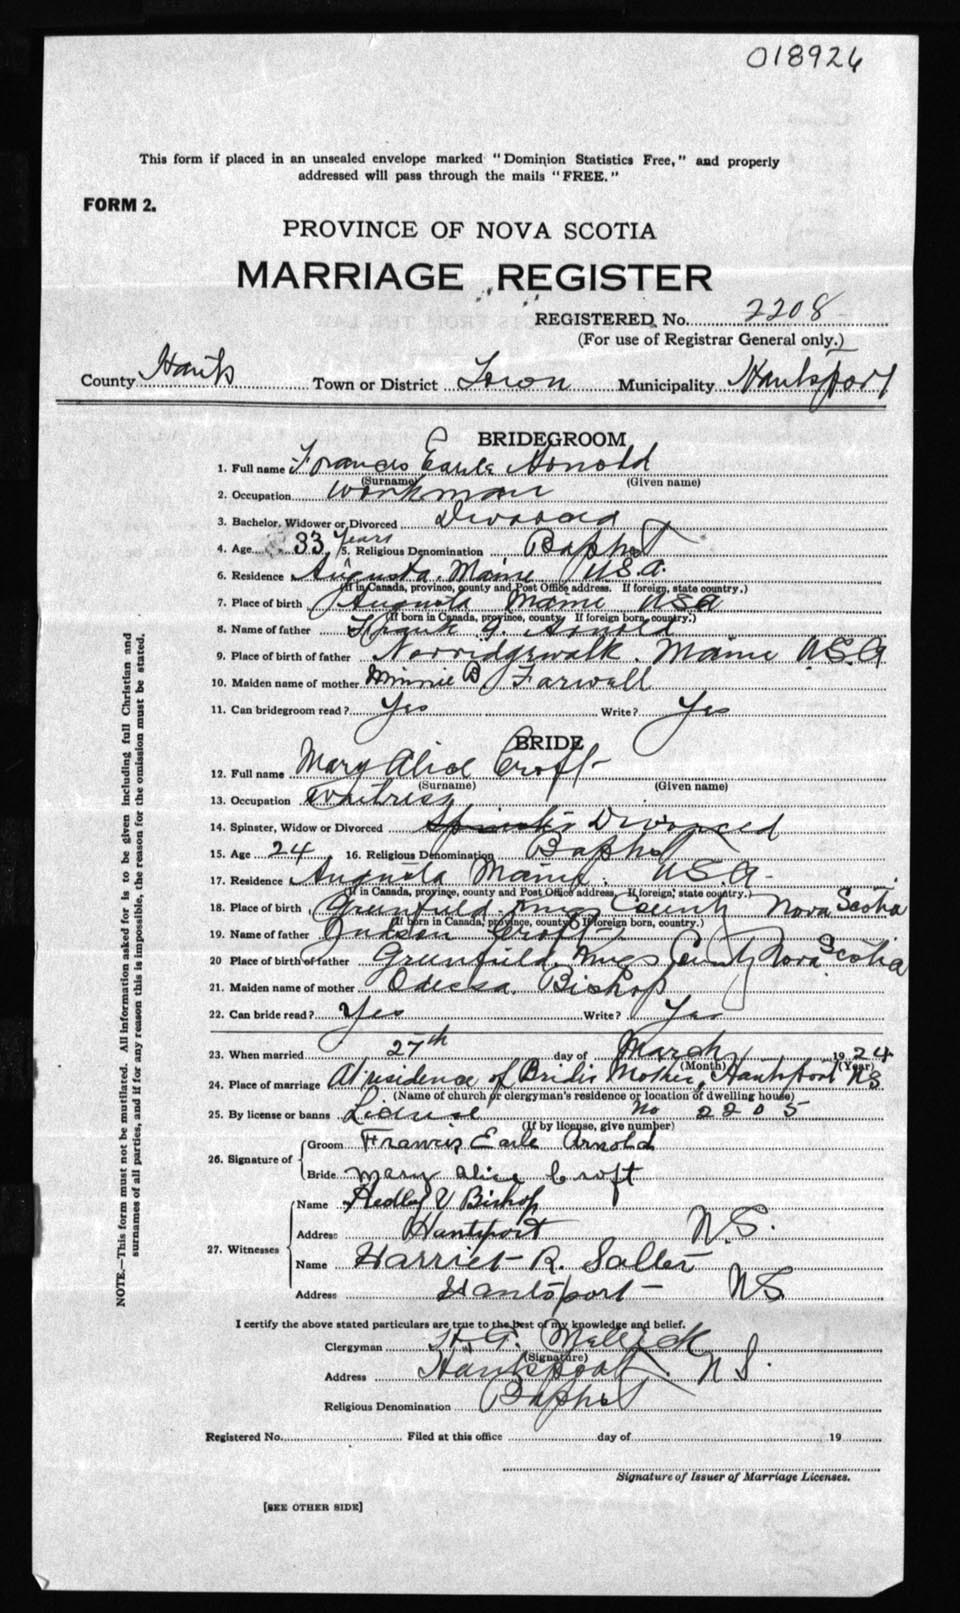 018926
This form if placed in an unsealed envelope marked "Dominion Statistics Free," and properly
addressed will pass through the mails "FREE."
FORM 2.
PROVINCE OF NOVA SCOTIA
MARRIAGE REGISTER
REGISTERED No. 2208
(For use of Registrar General only.)
County Hants Town or District Town Municipality Hantsport
BRIDEGROOM
1. Full name Francis Earle Arnold
(Surname) (Given name)
2. Occupation workman
3. Bachelor, Widower or Divorced Divorced
4. Age 33 years 5. Religious Denomination Baptist
6. Residence Augusta Maine U.S.A.
(If in Canada, province, county and Post Office address. If foreign, state country.)
7. Place of birth Augusta Maine USA
(If born in Canada, province, county If foreign born, country.)
8. Name of father Frank Arnold
9. Place of birth of father Norridgewalk. Maine U.S.A
10. Maiden name of mother Minnie B Farwell
11. Can bridegroom read? Yes Write? Yes
BRIDE
12. Full name Mary Alice Croft
(Surname) (Given name)
13. Occupation Waitress
14. Spinster, Widow or Divorced Divorced
15. Age 24 16. Religious Denomination Baptist
17. Residence Augusta Maine. U.S.A.
(If in Canada, province, county and Post Office address, If foreign, state country.)
18. Place of birth Greenfield Kings County Nova Scotia
(If born in Canada, province, county If foreign born, country.)
19. Name of father Judson Croft
20 Place of birth of father Greenfield Kings County Nova Scotia
21. Maiden name of mother Odessa Bishop
22. Can bride read? Yes Write? Yes
23. When married 27th day of March 1924
(Month) (Year)
24. Place of marriage At residence of Brides Mother, Hantsport NS
(Name of church or clergyman's residence or location of dwelling house)
25. By license or banns License No 2205
(If by license, give number)
26. Signature of Groom Francis Earle Arnold
Bride Mary Alice Croft
27. Witnesses Name Hedley V Bishop
Address Hantsport N.S.
Name Harriet R. Salter
Address Hantsport NS
I certify the above stated particulars are true to the best of my knowledge and belief.
Clergyman G. Mellick
(Signature)
Address Hantsport. N S.
Religious Denomination Baptist
Registered No. Filed at this office day of 19
Signature of Issuer of Marriage Licenses.
[SEE OTHER SIDE]
NOTE.—This form must not be mutilated. All information asked for is to be given including full Christian and
surnames of all parties, and if for any reason this is impossible, the reason for the omission must be stated.